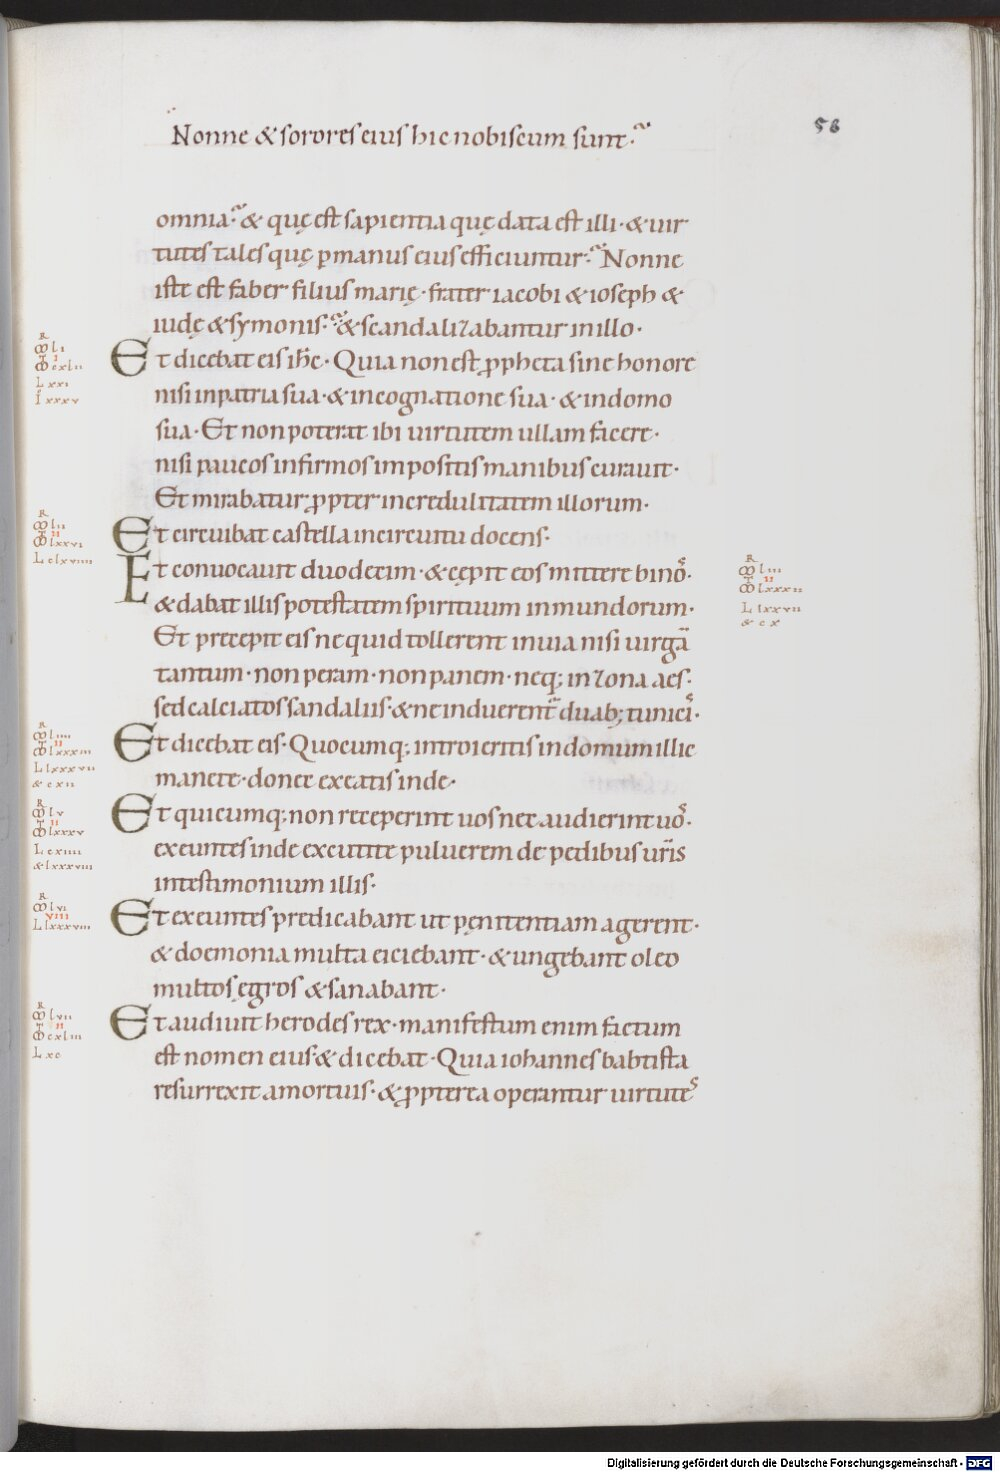 56
Nonne & sorores eius hic nobiscum sunt·
omnia· & quę est sapientia quę data est illi· & uir
tutes tales quę p manus eius efficiuntur· Nonne
iste est faber filius marię· frater iacobi & ioseph &
iudę & symonis· & scandalizabantur in illo·
Et dicebat eis ihc· Quia non est ppheta sine honore
nisi in patria sua· & in cognatione sua· & in domo
sua· Et non poterat ibi uirtutem ullam facere·
nisi paucos infirmos impositis manibus curauit·
Et mirabatur ppter incredulitatem illorum·
Et circuibat castella in circuitu docens·
Et conuocauit duodecim· & cępit eos mittere binos·
& dabat illis potestatem spirituum inmundorum·
Et precepit eis ne quid tollerent in uia nisi uirgā
tantum· non peram· non panem· neq; in zona aes·
sed calciatos sandaliis· & ne induerent duab; tunicis·
Et dicebat eis· Quocumq; introieritis in domum illic
manete· donec exeatis inde·
Et quicumq; non receperint uos nec audierint uos·
exeuntes inde excutite puluerem de pedibus uris
in testimonium illis·
Et exeuntes predicabant ut pęnitentiam agerent·
& doemonia multa eiciebant· & ungebant oleo
multos ęgros & sanabant·
Et audiuit herodes rex· manifestum enim factum
est nomen eius & dicebat· Quia iohannes babtista
resurrexit a mortuis· & ppterea operantur uirtutes
R
li
I
cxlii
L xxi
I xxxv
R
lii
II
lxxvi
L clxviiii
R
liii
II
lxxxii
L lxxvii
& c x
R
liiii
II
lxxxiii
L lxxxvii
& cxii
R
lv
II
lxxxv
L cxiiii
& lxxxviii
R
lvi
VIII
L lxxxviii
R
lvii
II
cxliii
L xc
Digitalisierung gefördert durch die Deutsche Forschungsgemeinschaft - DFG